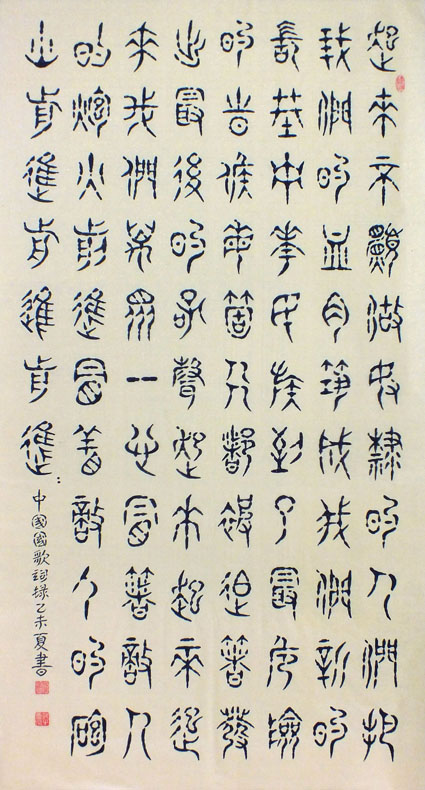 起來不願做奴隸的人們把
我們的血肉築成我們新的
長城中華民族到了最危險
的時候每箇人都被迫著發
出最後的吼聲起來起來起
來我們萬眾一心冒著敵人
的炮火前進冒著敵人的炮
火前進前進前進
中國國歌詞錄乙未夏書